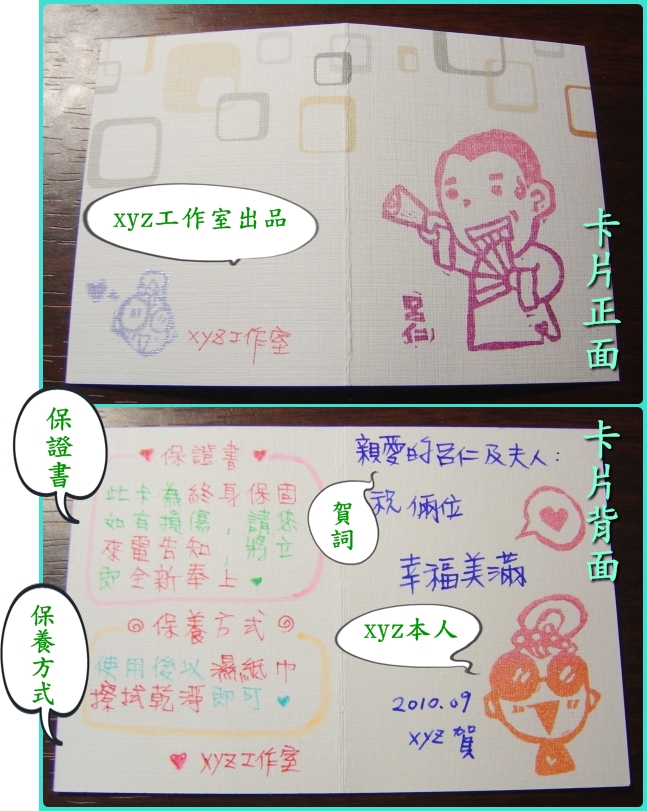 xyz工作室出品
xyz工作室
呂仁
卡片正面
保證書
保證書
此卡為終身保固
如有損傷，請您
來電告知，將立
即全新奉上
保養方式
保養方式
使用後以濕紙巾
擦拭乾淨即可
xyz工作室
卡片背面
親愛的呂仁及夫人：
賀詞
祝 倆位
幸福美滿
xyz本人
2010.09
xyz 賀